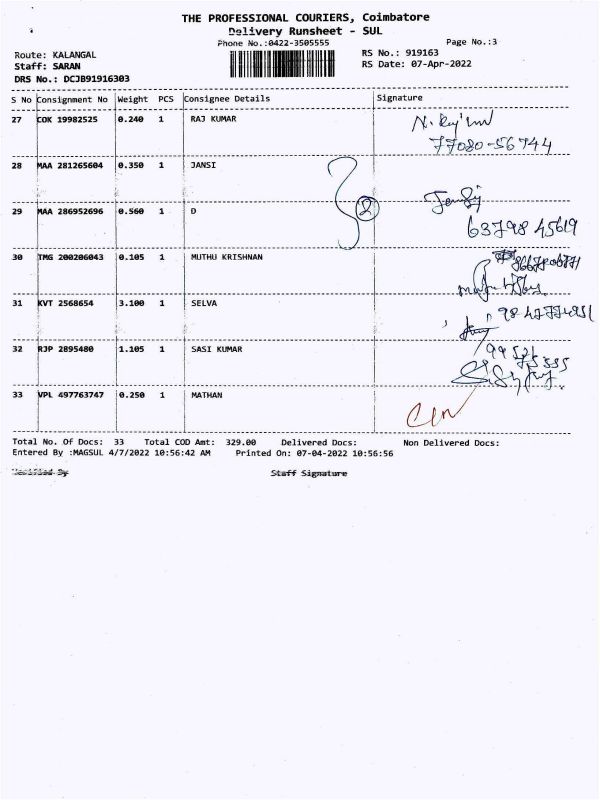 THE PROFESSIONAL COURIERS, Coimbatore
Delivery Runsheet - SUL
Phone No.:0422-3505555
Page No.:3
Route: KALANGAL
RS No.: 919163
Staff: SARAN
RS Date: 07-Apr-2022
DRS No.: DCJB91916303
S No Consignment No Weight PCS Consignee Details Signature
27 COK 19982525 0.240 1 RAJ KUMAR
77080-56744
28 MAA 281265604 0.350 1 JANSI
Jansi
2
29 MAA 286952696 0.560 1 D
63798 45619
30 TMG 200206043 0.105 1 MUTHU KRISHNAN
31 KVT 2568654 3.100 1 SELVA
32 RJP 2895480 1.105 1 SASI KUMAR
33 VPL 497763747 0.250 1 MATHAN
Total No. Of Docs: 33 Total COD Amt: 329.00 Delivered Docs: Non Delivered Docs:
Entered By :MAGSUL 4/7/2022 10:56:42 AM Printed On: 07-04-2022 10:56:56
Verified By Staff Signature